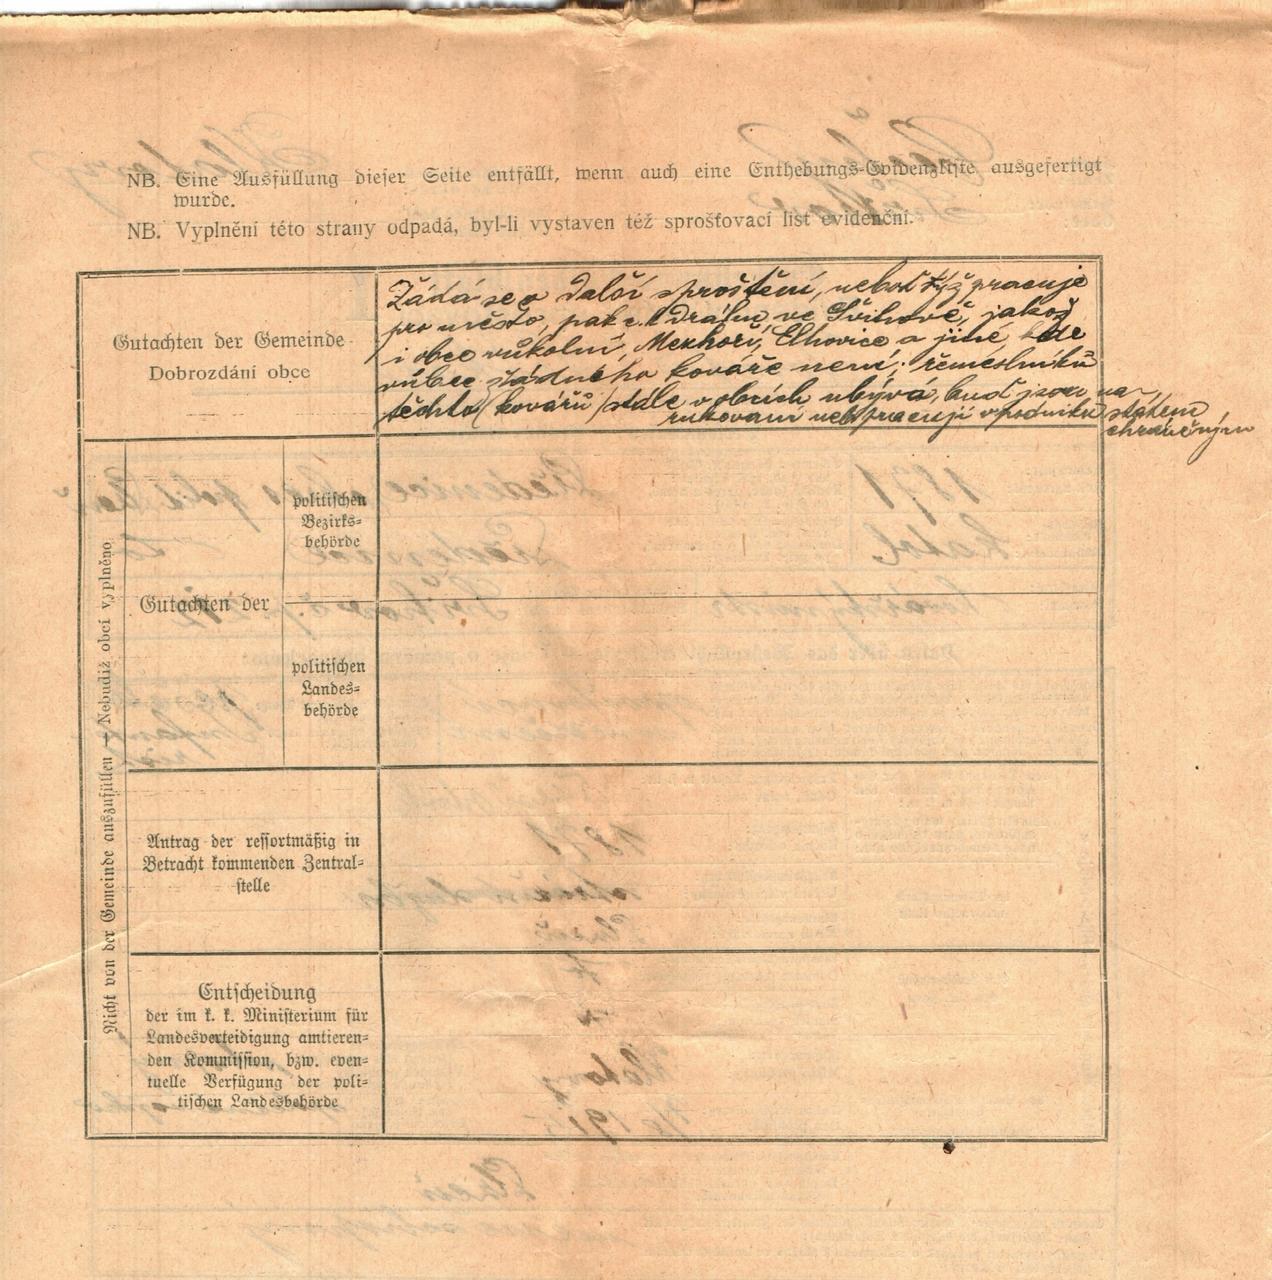 NB. Eine Ausfüllung dieser Seite entfällt, wenn auch eine Enthebungs-Evidenzliste ausgefertigt
wurde.
NB. Vyplnění této strany odpadá, byl-li vystaven též sprošťovací list evidenční.
Gutachten der Gemeinde
Dobrozdání obce
Žádá se o další sproštění, neboť týž pracuje
pro město, pak c. k. dráhu ve Švihově, jakož
i obce vůkolní, Mezhoří, Lhovice a jiné, kde
vůbec žádného kováře není; řemeslníků
těchto (kovářů) stále v obcích ubývá, buď jsou na-
rukovaní neb pracují v podniku státem
chráněným
Nicht von der Gemeinde auszufüllen — Nebudiž obcí vyplněno
Gutachten der
politischen
Bezirks-
behörde
politischen
Landes-
behörde
Antrag der ressortmäßig in
Betracht kommenden Zentral-
stelle
Entscheidung
der im k. k. Ministerium für
Landesverteidigung amtieren-
den Kommission, bzw. even-
tuelle Verfügung der poli-
tischen Landesbehörde